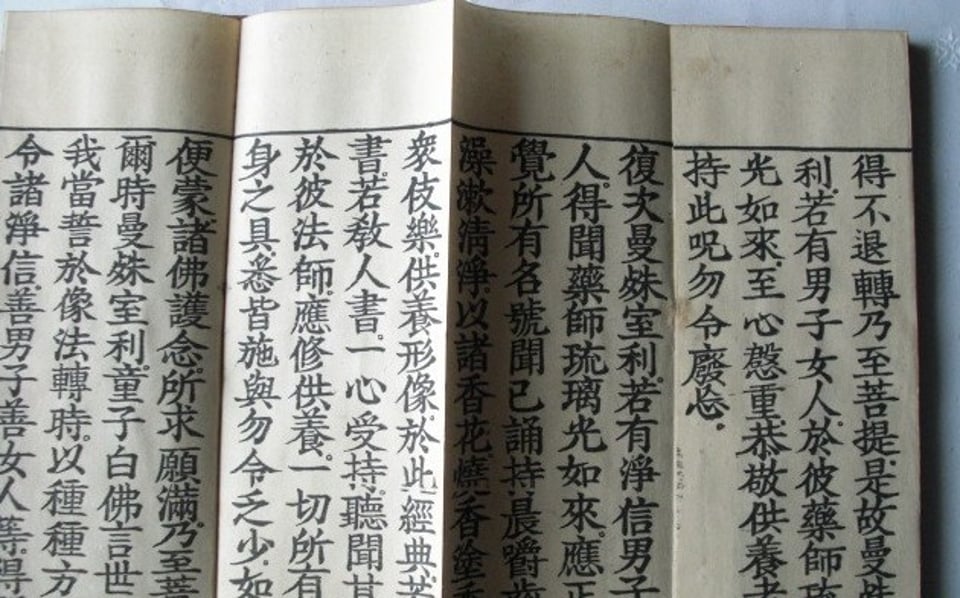 得不退轉乃至菩提。是故曼殊
利。若有男子女人。於彼藥師琉
光如來。至心慇重。恭敬供養者
持此呪勿令廢忘。
復次曼殊室利。若有淨信男子
人。得聞藥師琉璃光如來。應正
覺所有名號。聞已誦持。晨嚼齒
澡漱清淨。以諸香花。燒香塗香
衆伎樂。供養形像。於此經典。若
書。若教人書。一心受持。聽聞其
於彼法師。應修供養。一切所有
身之具。悉皆施與。勿令乏少。如
便蒙諸佛護念。所求願滿。乃至菩
爾時曼殊室利童子白佛言世
我當誓於像法轉時。以種種方
令諸淨信。善男子善女人等。得